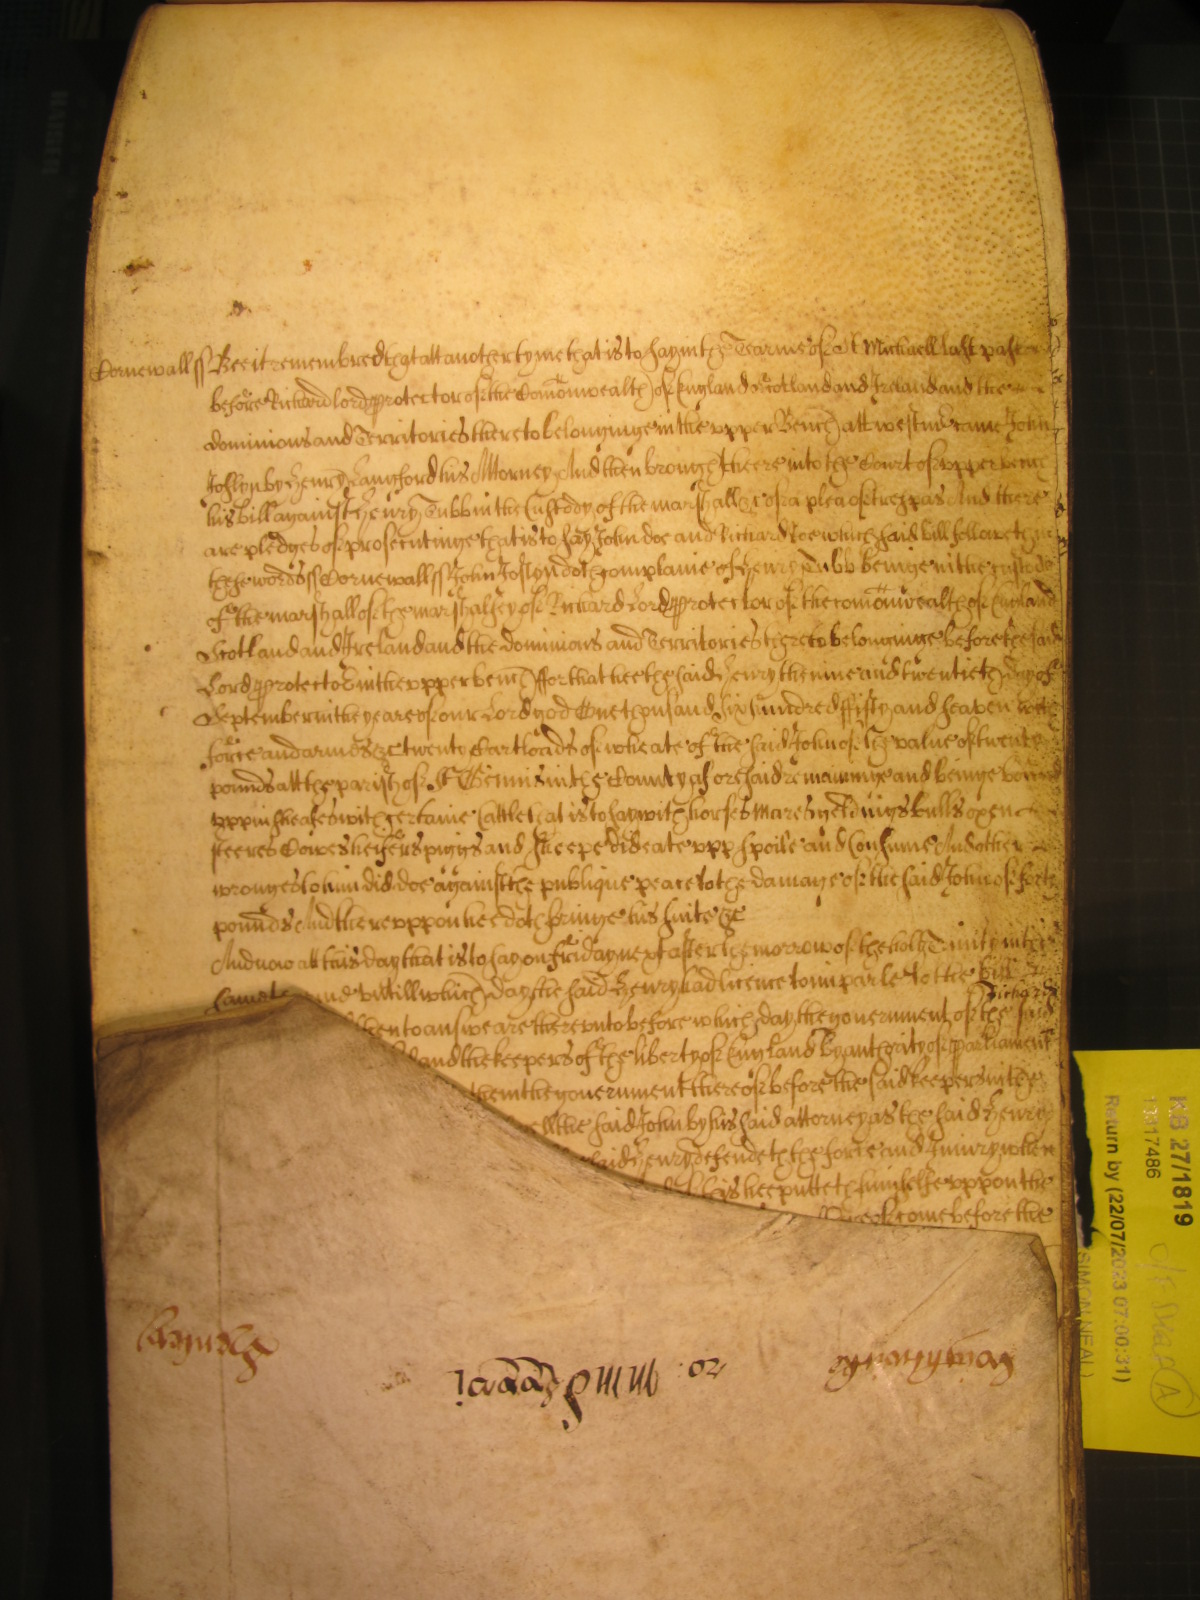 Cornewall ss Bee it remembred that att another tyme that is to say in the Tearme of St Michaell last past
before Richard lord protector of the Comonwealth of England Scotland and Ireland and the
dominions and Territories thereto belonginge in the vpper Bench att westmr came John
Joslyn by Henry Langford his Attorney And then brought here into the Court of vpper bench
his bill against Henry Tubb in the Custody of the marshall &c of a plea of trespas And there
are pledges of prosecutinge that is to say John doe and Richard Roe which said bill followeth in
these words ss Cornewall ss John Joslyn doth complaine of Henry Tubb beinge in the custody
of the marshall of the marshalsey of Richard Lord protector of the comonwealth of England
Scotland and Ireland and the dominions and Territories thereto belonginge before the said
Lord protector in the vpper bench ffor that hee the said Henry the nine and twentieth day of
September in the yeare of our Lord god One thousand six hundred ffifty and seaven with
force and armes &c twenty Cartloads of wheate of the said John of the value of twenty
pounds att the parish of St Gennis in the County aforesaid remaininge and beinge bound
vpp in sheafes with certaine Cattle that is to say with horses mares geldings bulls oxen
steeres Cowes heifers piggs and sheepe did eate vpp spoile and Consume And other
wronges to him did doe against the publique peace to the damage of the said John of forty
pounds And therevppon hee doth bringe his suite &c
And now att this day that is to say on Friday next after the morrow of the holy Trinity in the
same vntill which day the said Henry had licence to imparle to the bill
Richard
then to answeare therevnto before which day the government of the said
and the keepers of the liberty of England by authority of parliament
them the government thereof before the said keepers in the
well the said John by his said attorney as the said Henry
said Henry defendeth the force and Iniury when
this hee putteth himselfe vppon the
come before the
KB 27/1819
13317486
Return by (22/07/2023 07:00:31)
SIMON NEAL
A